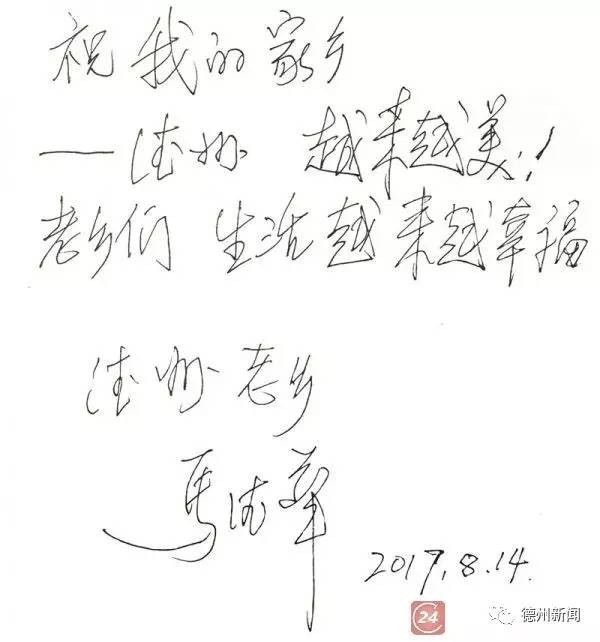 祝我的家乡
——德州 越来越美！
老乡们 生活越来越幸福
德州老乡
马德华
2017.8.14.
24
德州新闻